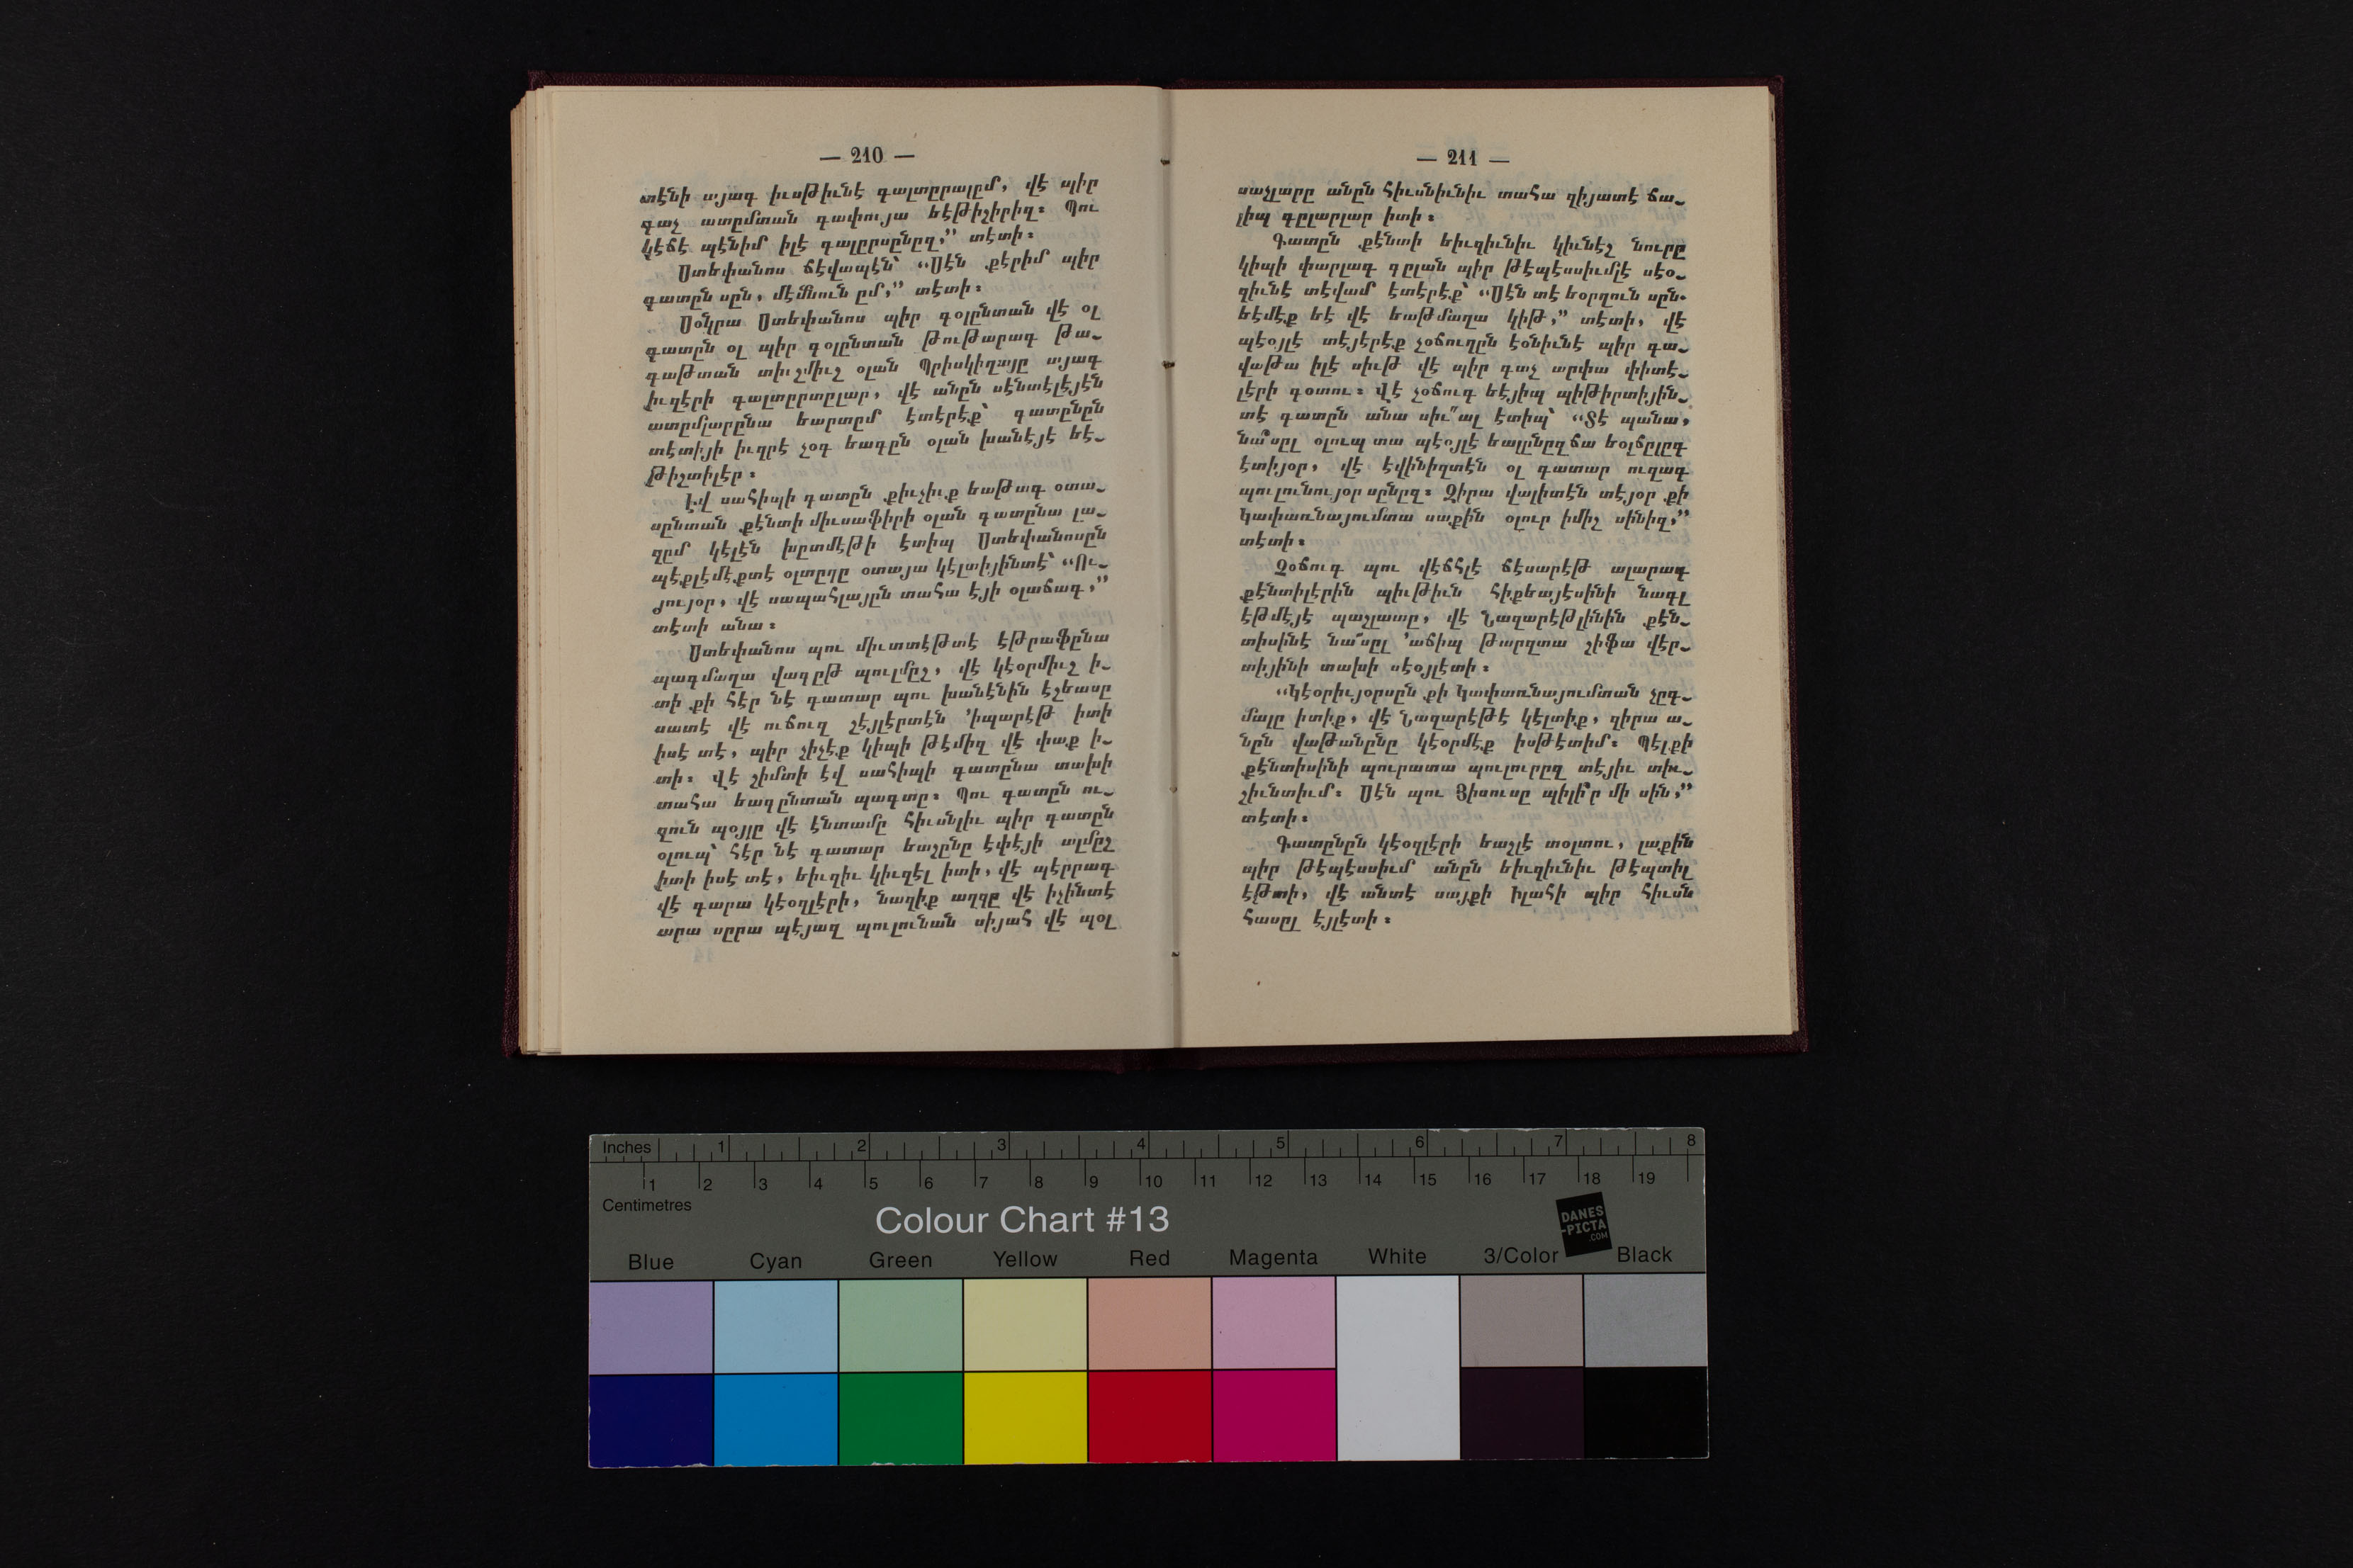 — 210 —
տէնի այագ իւսթիւնէ գալտըրալըմ, վէ պիր
գաչ ատըմտան գափույա եէթիշիրիզ։ Պու
կէճէ պէնիմ իլէ գալըրսընըզ,” տէտի։
Ստեփանոս ճէվապէն՝ “Սէն քէրիմ պիր
գատըն սըն, մէմնուն ըմ,” տէտի։
Սօնկրա Ստեփանոս պիր գօլընտան վէ օլ
գատըն օլ պիր գօլընտան թութարագ թա֊
գաթտան տիւշմիւշ օլան Պրիսկիղայը այագ
իւզէրի գալտըրտըլար, վէ անըն սէնտէլէյէն
ատըմլարընա եարտըմ էտէրէք՝ գատընըն
տէտիյի իւզրէ չօգ եագըն օլան խանէյէ եէ֊
թիշտիլէր։
Էվ սահիպի գատըն քիւչիւք եաթագ օտա֊
սընտան քէնտի միւսաֆիրի օլան գատընա լա֊
զըմ կէլէն խըտմէթի էտիպ Ստեփանոսըն
պէքլէմէքտէ օլտըղը օտայա կէլտիյինտէ՝ “Ու֊
յույօր, վէ սապահլայըն տահա էյի օլաճագ,”
տէտի անա։
Ստեփանոս պու միւտտէթտէ էթրաֆընա
պագմաղա վագըթ պուլմըշ, վէ կէօրմիւշ ի֊
տի քի հէր նէ գատար պու խանէնին էշեասը
սատէ վէ ուճուզ շէյլէրտէն ’իպարէթ իտի
իսէ տէ, պիր չիչէք կիպի թէմիզ վէ փաք ի֊
տի։ Վէ շիմտի էվ սահիպի գատընա տախի
տահա եագընտան պագտը։ Պու գատըն ու֊
զուն պօյլը վէ էնտամը հիւսնլիւ պիր գատըն
օլուպ՝ հէր նէ գատար եաշընը էփէյի ալմըշ
իտի իսէ տէ, եիւզիւ կիւզէլ իտի, վէ պէրրագ
վէ գարա կէօզլէրի, նազիք աղզը վէ իչինտէ
արա սըրա պէյազ պուլունան սիյահ վէ պօլ
— 211 —
սաչլարը անըն հիւսնիւնիւ տահա զիյատէ ճա֊
լիպ գըլարլար իտի։
Գատըն քէնտի եիւզիւնիւ կիւնէշ նուրը
կիպի փարլագ գըլան պիր թէպէսսիւմլէ սէօ֊
զիւնէ տէվամ էտէրէք՝ “Սէն տէ եօրղուն սըն.
եէմէք եէ վէ եաթմաղա կիթ,” տէտի, վէ
պէօյլէ տէյէրէք չօճուղըն էօնիւնէ պիր գա֊
վաթա իլէ սիւթ վէ պիր գաչ արփա փիտէ֊
լէրի գօտու։ Վէ չօճուգ եէյիպ պիթիրտիյին֊
տէ գատըն անա սիւ՞ալ էտիպ՝ “Տէ պանա,
նա՞սըլ օլուպ տա պէօյլէ եալընըզճա եօլճըլըգ
էտիյօր, վէ էվինիզտէն օլ գատար ուզագ
պուլունույօր սընըզ։ Զիրա վալիտէն տէյօր քի
Կափառնայումտա սաքին օլուր իմիշ սինիզ,”
տէտի։
Չօճուգ պու վէճհլէ ճէսարէթ ալարագ
քէնտիլէրին պիւթիւն հիքեայէսինի նագլ
էթմէյէ պաշլատը, վէ Նազարէթլինին քէն֊
տիսինէ նա՞սըլ ’աճիպ թարզտա շիֆա վէր֊
տիյինի տախի սէօյլէտի։
“Կէօրիւյօրսըն քի Կափառնայումտան չըգ֊
մալը իտիք, վէ Նազարէթէ կէլտիք, զիրա ա֊
նըն վաթանընը կէօրմէք իսթէտիմ։ Պէլքի
քէնտիսինի պուրատա պուլուրըզ տէյիւ տիւ֊
շիւնտիւմ։ Սէն պու Յիսուսը պիլի՞ր մի սին,”
տէտի։
Գատընըն կէօզլէրի եաշլէ տօլտու, լաքին
պիր թէպէսսիւմ անըն եիւզիւնիւ թէպտիլ
էթտի, վէ անտէ սայքի իլահի պիր հիւսն
հասըլ էյլէտի։
Inches 1 2 3 4 5 6 7 8
1 2 3 4 5 6 7 8 9 10 11 12 13 14 15 16 17 18 19
Centimetres
Colour Chart #13
DANES
-PICTA
.COM
Blue Cyan Green Yellow Red Magenta White 3/Color Black